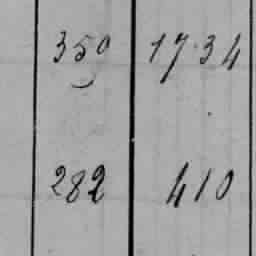 350 1734
282 410